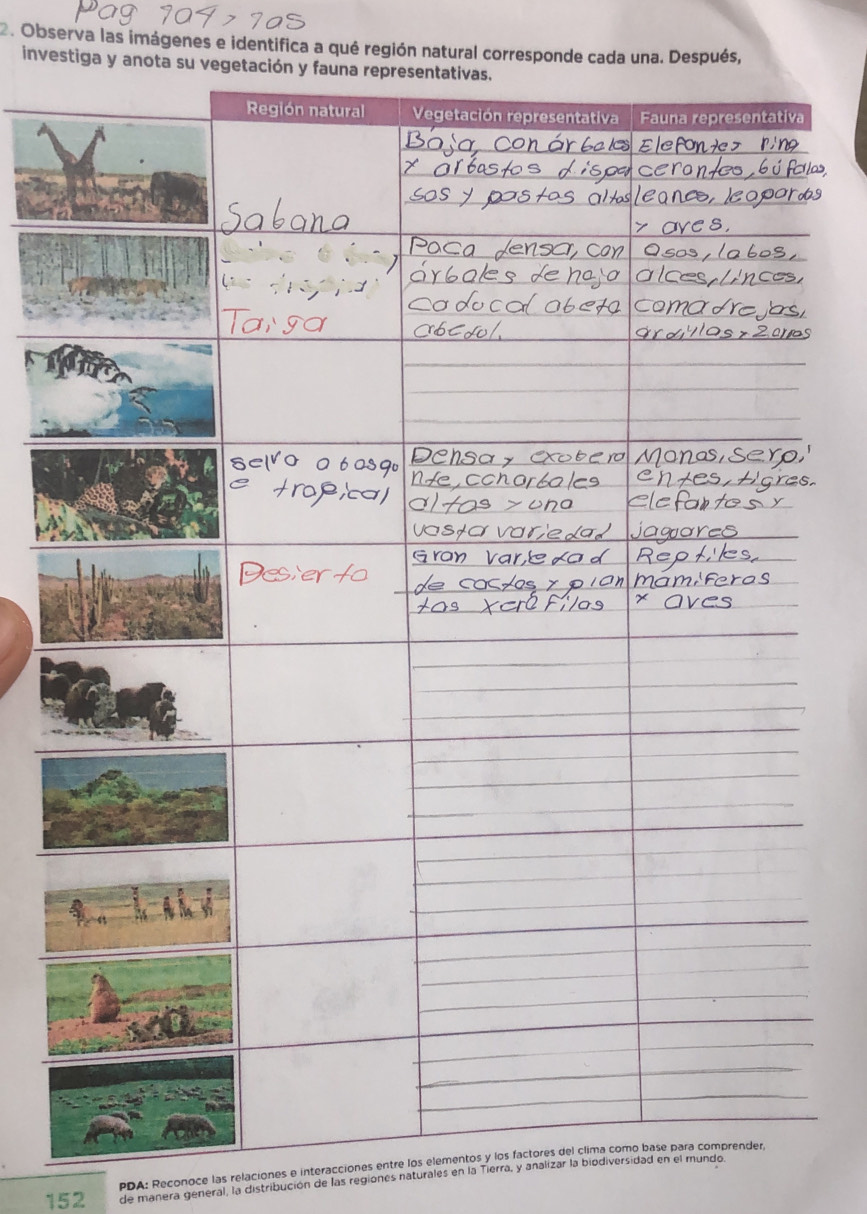 Pag 104 y 105
2. Observa las imágenes e identifica a qué región natural corresponde cada una. Después,
investiga y anota su vegetación y fauna representativas.
Región natural Vegetación representativa Fauna representativa
Sabana
Baja con árboles
y arbostos dispe
sos y pastos altos
Elefantes rino
cerontes, búfalos,
leones, leopardos
y aves.
Taiga
Poca densa, con
árboles de hoja
caducal abeto
abedul.
osos, lobos,
alces, linces,
comadrejas,
ardillas y zorros
selva o bosqu
e tropical
Densa y exobera
nte, con arboles
altos y una
vasta variedad
Monos, serpi
entes, tigres.
elefantes y
jaguares
Desierto
Gran variedad
de cactos y plan
tas xerófilas
Reptiles,
mamiferos
y aves
PDA: Reconoce las relaciones e interacciones entre los elementos y los factores del clima como base para comprender,
de manera general, la distribución de las regiones naturales en la Tierra, y analizar la biodiversidad en el mundo.
152